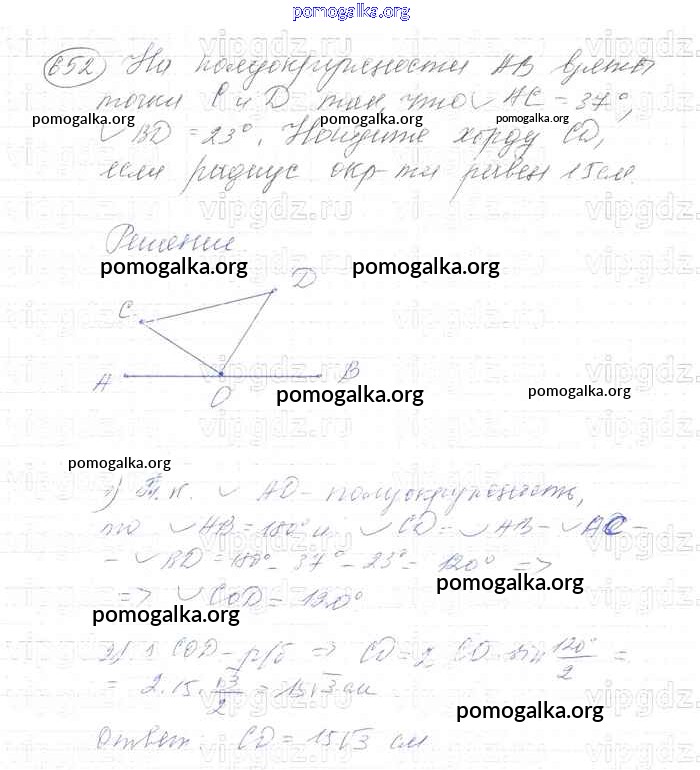 pomogalka.org
652 На полуокружности AB взяты
точки C и D так, что ◡ AC = 37°,
pomogalka.org pomogalka.org pomogalka.org
◡ BD = 23°. Найдите хорду CD,
если радиус окр-ти равен 15 см.
Решение
pomogalka.org pomogalka.org
D
C
A O B
pomogalka.org pomogalka.org
pomogalka.org
1) Т.к. ◡ AD - полуокружность,
то ◡ AB = 180° и ◡ CD = ◡ AB - ◡ AC -
- ◡ BD = 180° - 37° - 23° = 120° =>
pomogalka.org
=> ◡ COD = 120°
pomogalka.org
COD - р/б => CD = 2 · CO · sin 120°/2 =
= 2 · 15 · √3/2 = 15√3 см
pomogalka.org
Ответ: CD = 15√3 см.